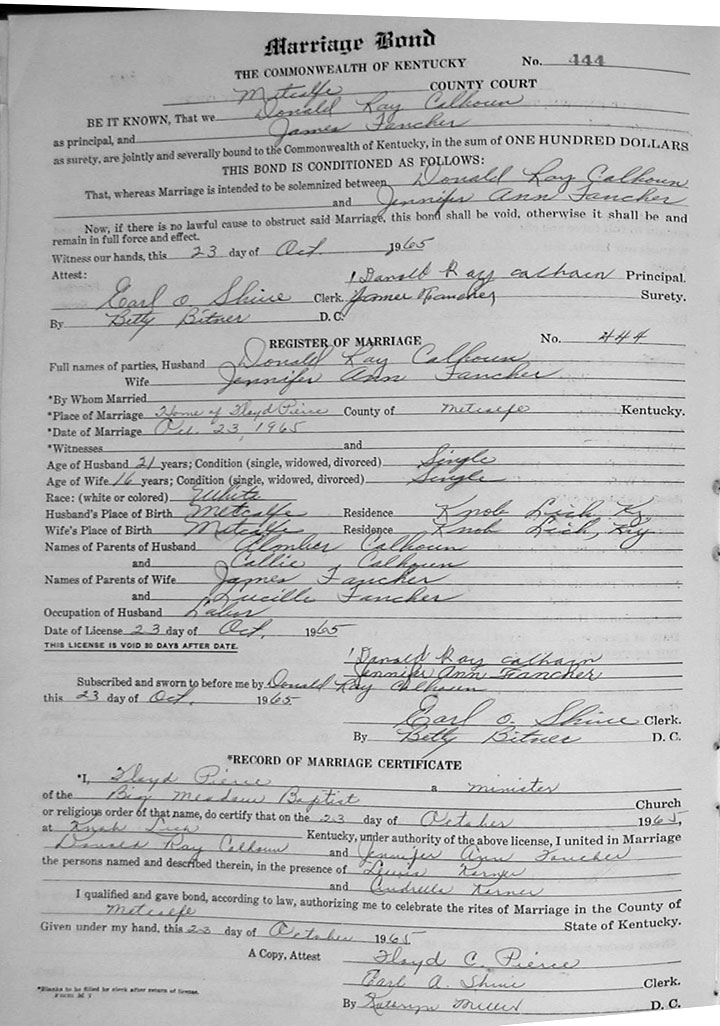 Marriage Bond
THE COMMONWEALTH OF KENTUCKY No. 444
Metcalfe COUNTY COURT
BE IT KNOWN, That we Donald Ray Calhoun
as principal, and James Fancher
as surety, are jointly and severally bound to the Commonwealth of Kentucky, in the sum of ONE HUNDRED DOLLARS
THIS BOND IS CONDITIONED AS FOLLOWS:
That, whereas Marriage is intended to be solemnized between Donald Ray Calhoun
and Jennifer Ann Fancher
Now, if there is no lawful cause to obstruct said Marriage, this bond shall be void, otherwise it shall be and
remain in full force and effect.
Witness our hands, this 23 day of Oct. 1965
Attest: Donald Ray calhoun Principal.
Earl O. Shive Clerk. James Fancher Surety.
By Betty Bitner D. C.
REGISTER OF MARRIAGE No. 444
Full names of parties, Husband Donald Ray Calhoun
Wife Jennifer Ann Fancher
*By Whom Married
*Place of Marriage Home of Floyd Pierce County of Metcalfe Kentucky.
*Date of Marriage Oct. 23, 1965
*Witnesses and
Age of Husband 21 years; Condition (single, widowed, divorced) Single
Age of Wife 16 years; Condition (single, widowed, divorced) Single
Race: (white or colored) White
Husband's Place of Birth Metcalfe Residence Knob Lick, Ky
Wife's Place of Birth Metcalfe Residence Knob Lick, Ky
Names of Parents of Husband Calhoun
and Callie Calhoun
Names of Parents of Wife James Fancher
and Lucille Fancher
Occupation of Husband Labor
Date of License 23 day of Oct. 1965
THIS LICENSE IS VOID 30 DAYS AFTER DATE.
Donald Ray calhoun
Jennifer Ann Fancher
Subscribed and sworn to before me by Donald Ray Calhoun
this 23 day of Oct. 1965
Earl O. Shive Clerk.
By Betty Bitner D. C.
*RECORD OF MARRIAGE CERTIFICATE
*I, Floyd Pierce a minister
of the Big Meadow Baptist Church
or religious order of that name, do certify that on the 23 day of October 1965,
at Knob Lick Kentucky, under authority of the above license, I united in Marriage
Donald Ray Calhoun and Jennifer Ann Fancher
the persons named and described therein, in the presence of Lewis
and
I qualified and gave bond, according to law, authorizing me to celebrate the rites of Marriage in the County of
Metcalfe State of Kentucky.
Given under my hand, this 23 day of October 1965
A Copy, Attest Floyd C. Pierce
Earl A. Shive Clerk.
By Kathryn Miller D. C.
*Blanks to be filled by clerk after return of license.